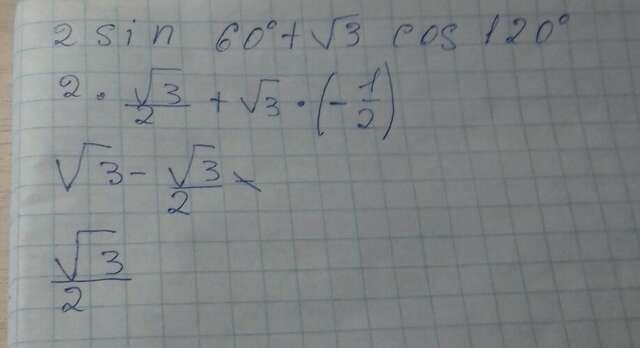 2 sin 60° + √3 cos 120°
2 · √3/2 + √3 · (-1/2)
√3 - √3/2
√3/2